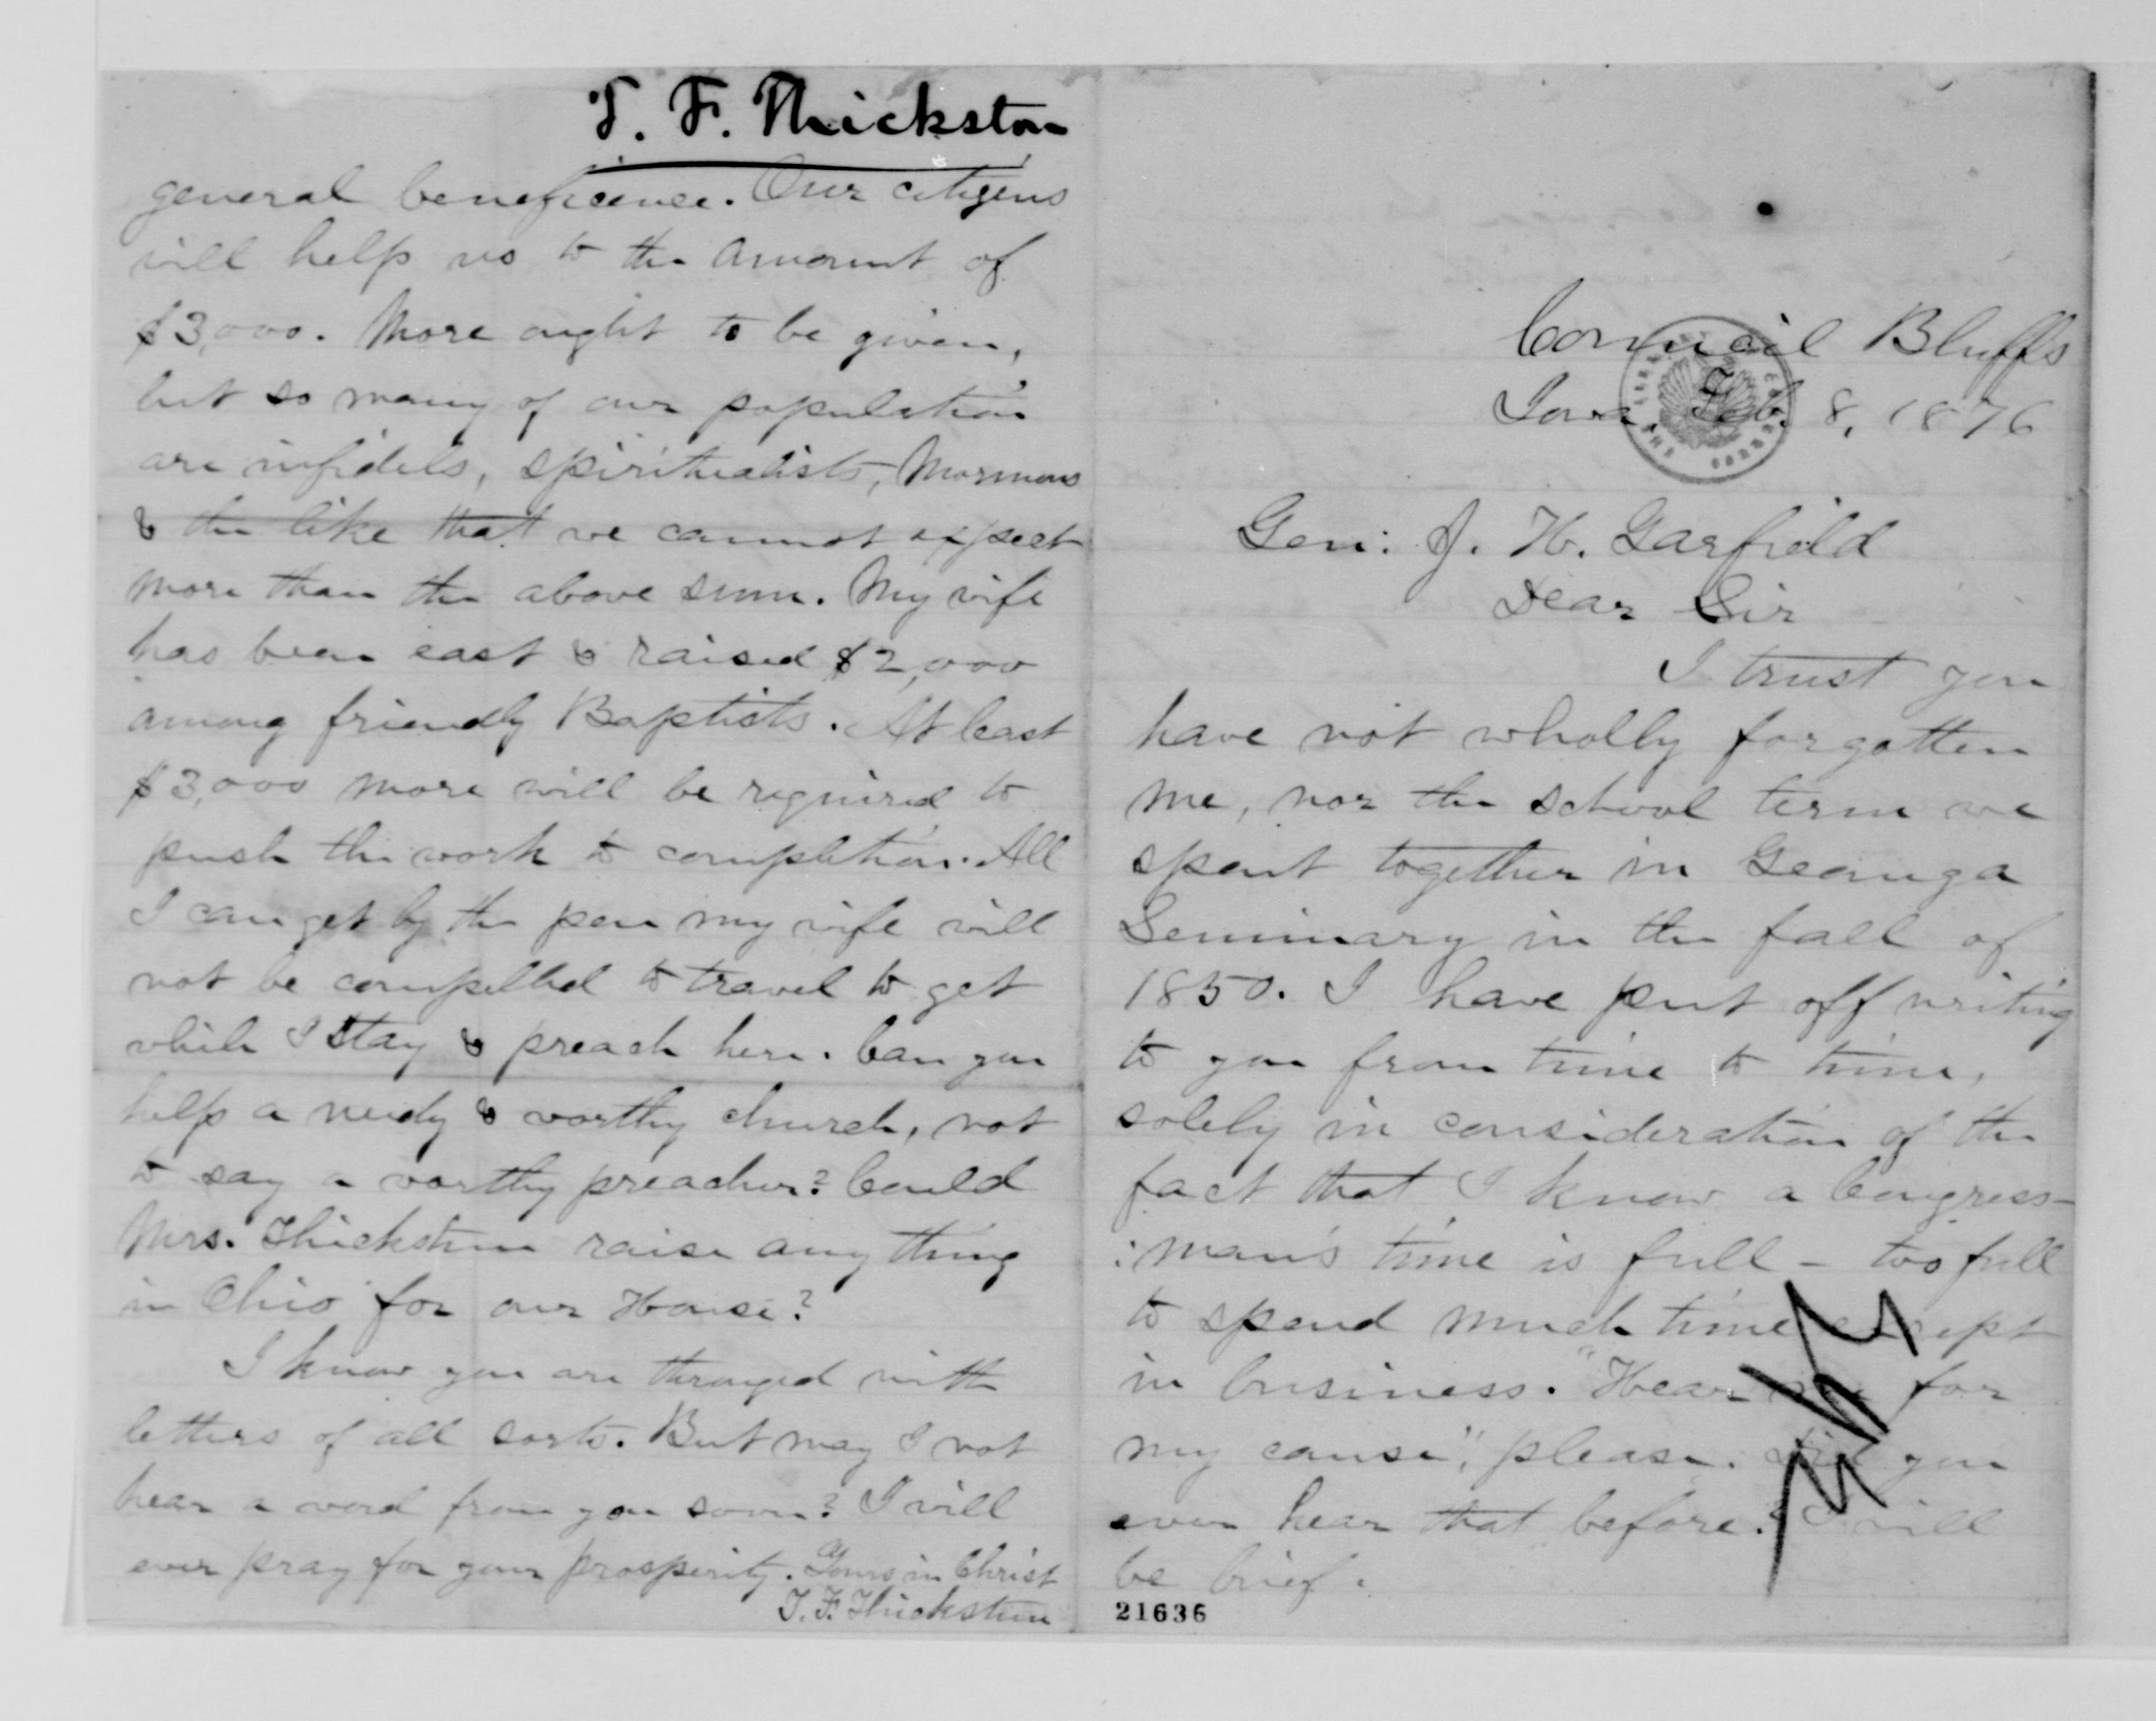 T. F. Thickston
general beneficence. Our citizens
will help us to the amount of
$3,000. More ought to be given,
but so many of our population
are infidels, spiritualists, Mormons
& the like that we cannot expect
more than the above sum. My wife
has been east & raised $2,000
among friendly Baptists. At least
$3,000 more will be required to
push the work to completion. All
I can get by the pen my wife will
not be compelled to travel to get
while I stay & preach here. Can you
help a needy & worthy church, not
to say a worthy preacher? Could
Mrs. Thickstun raise any thing
in Ohio for our House?
I know you are thronged with
letters of all sorts. But may I not
hear a word from you soon? I will
ever pray for your prosperity. Yours in Christ
T. F. Thickstun
Council Bluffs
Iowa, Feb. 8, 1876
Gen: J. H. Garfield
Dear Sir
I trust you
have not wholly forgotten
me, nor the school term we
spent together in Geauga
Seminary in the fall of
1850. I have put off writing
to you from time to time,
solely in consideration of the
fact that I know a Congress-
:man's time is full - too full
to spend much time except
in business. "Hear me for
my cause", please. Did you
ever hear that before? I will
be brief.
21636